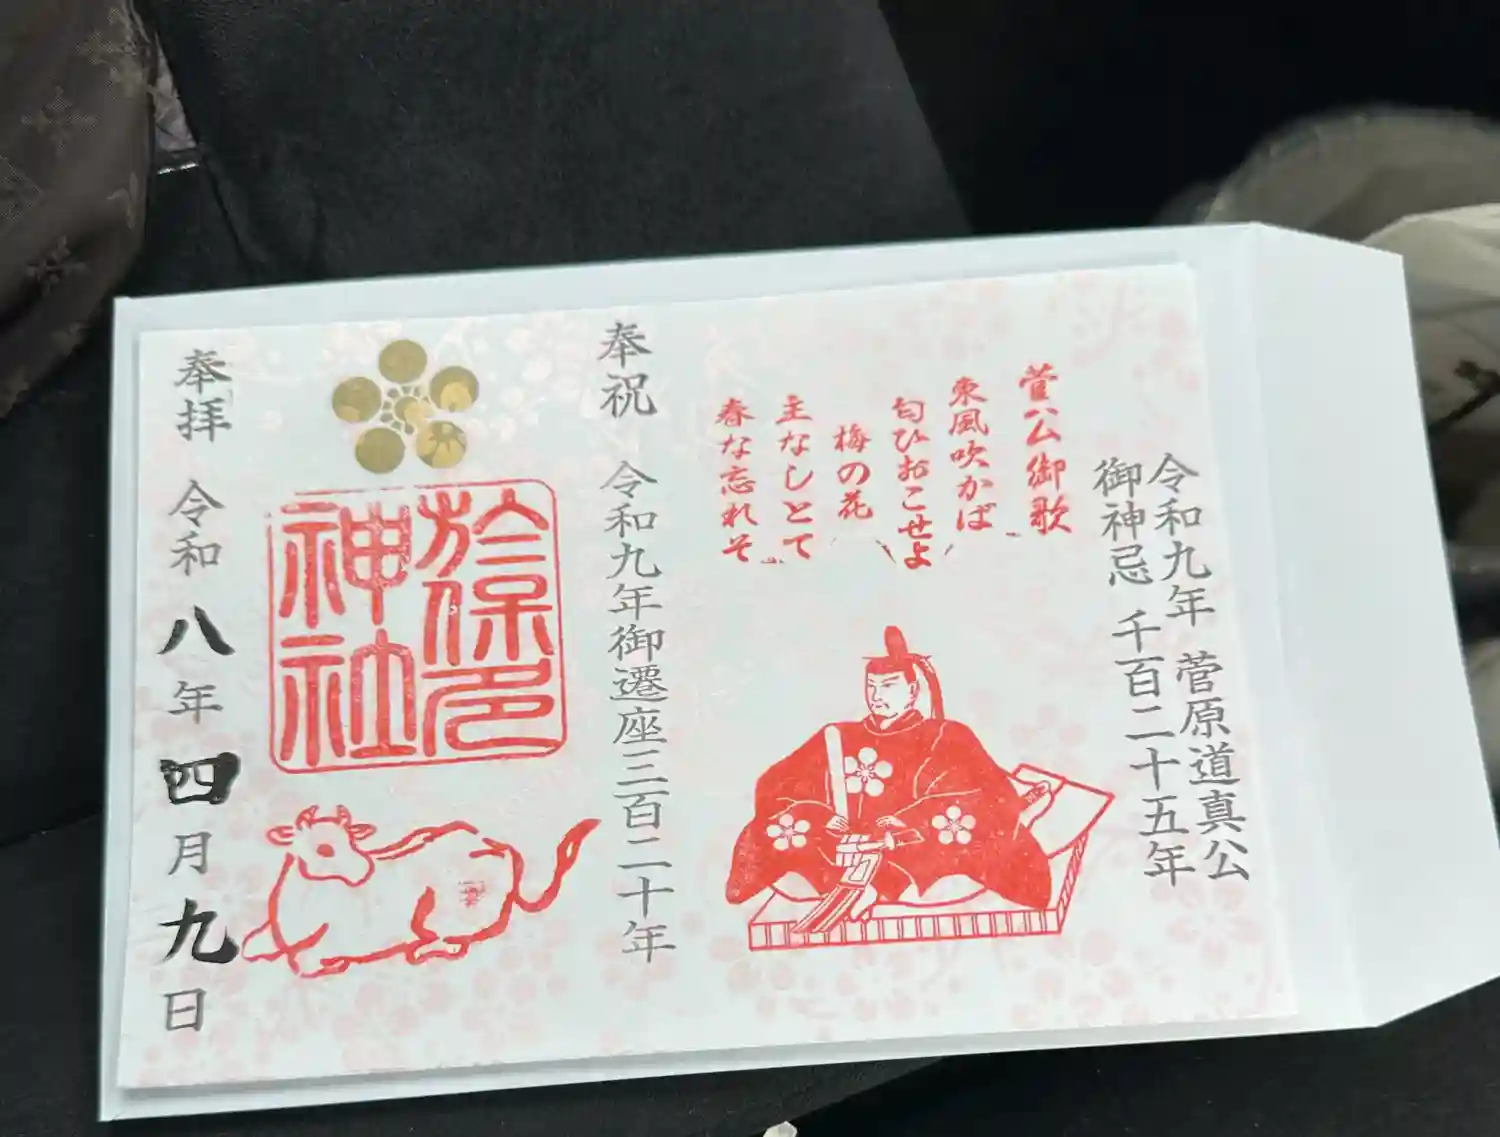 令和九年 菅原道真公
御神忌 千百二十五年
菅公御歌
東風吹かば
匂ひおこせよ
梅の花
主なしとて
春な忘れそ
奉祝 令和九年御遷座三百二十年
於保多
神社
奉拝 令和八年四月九日